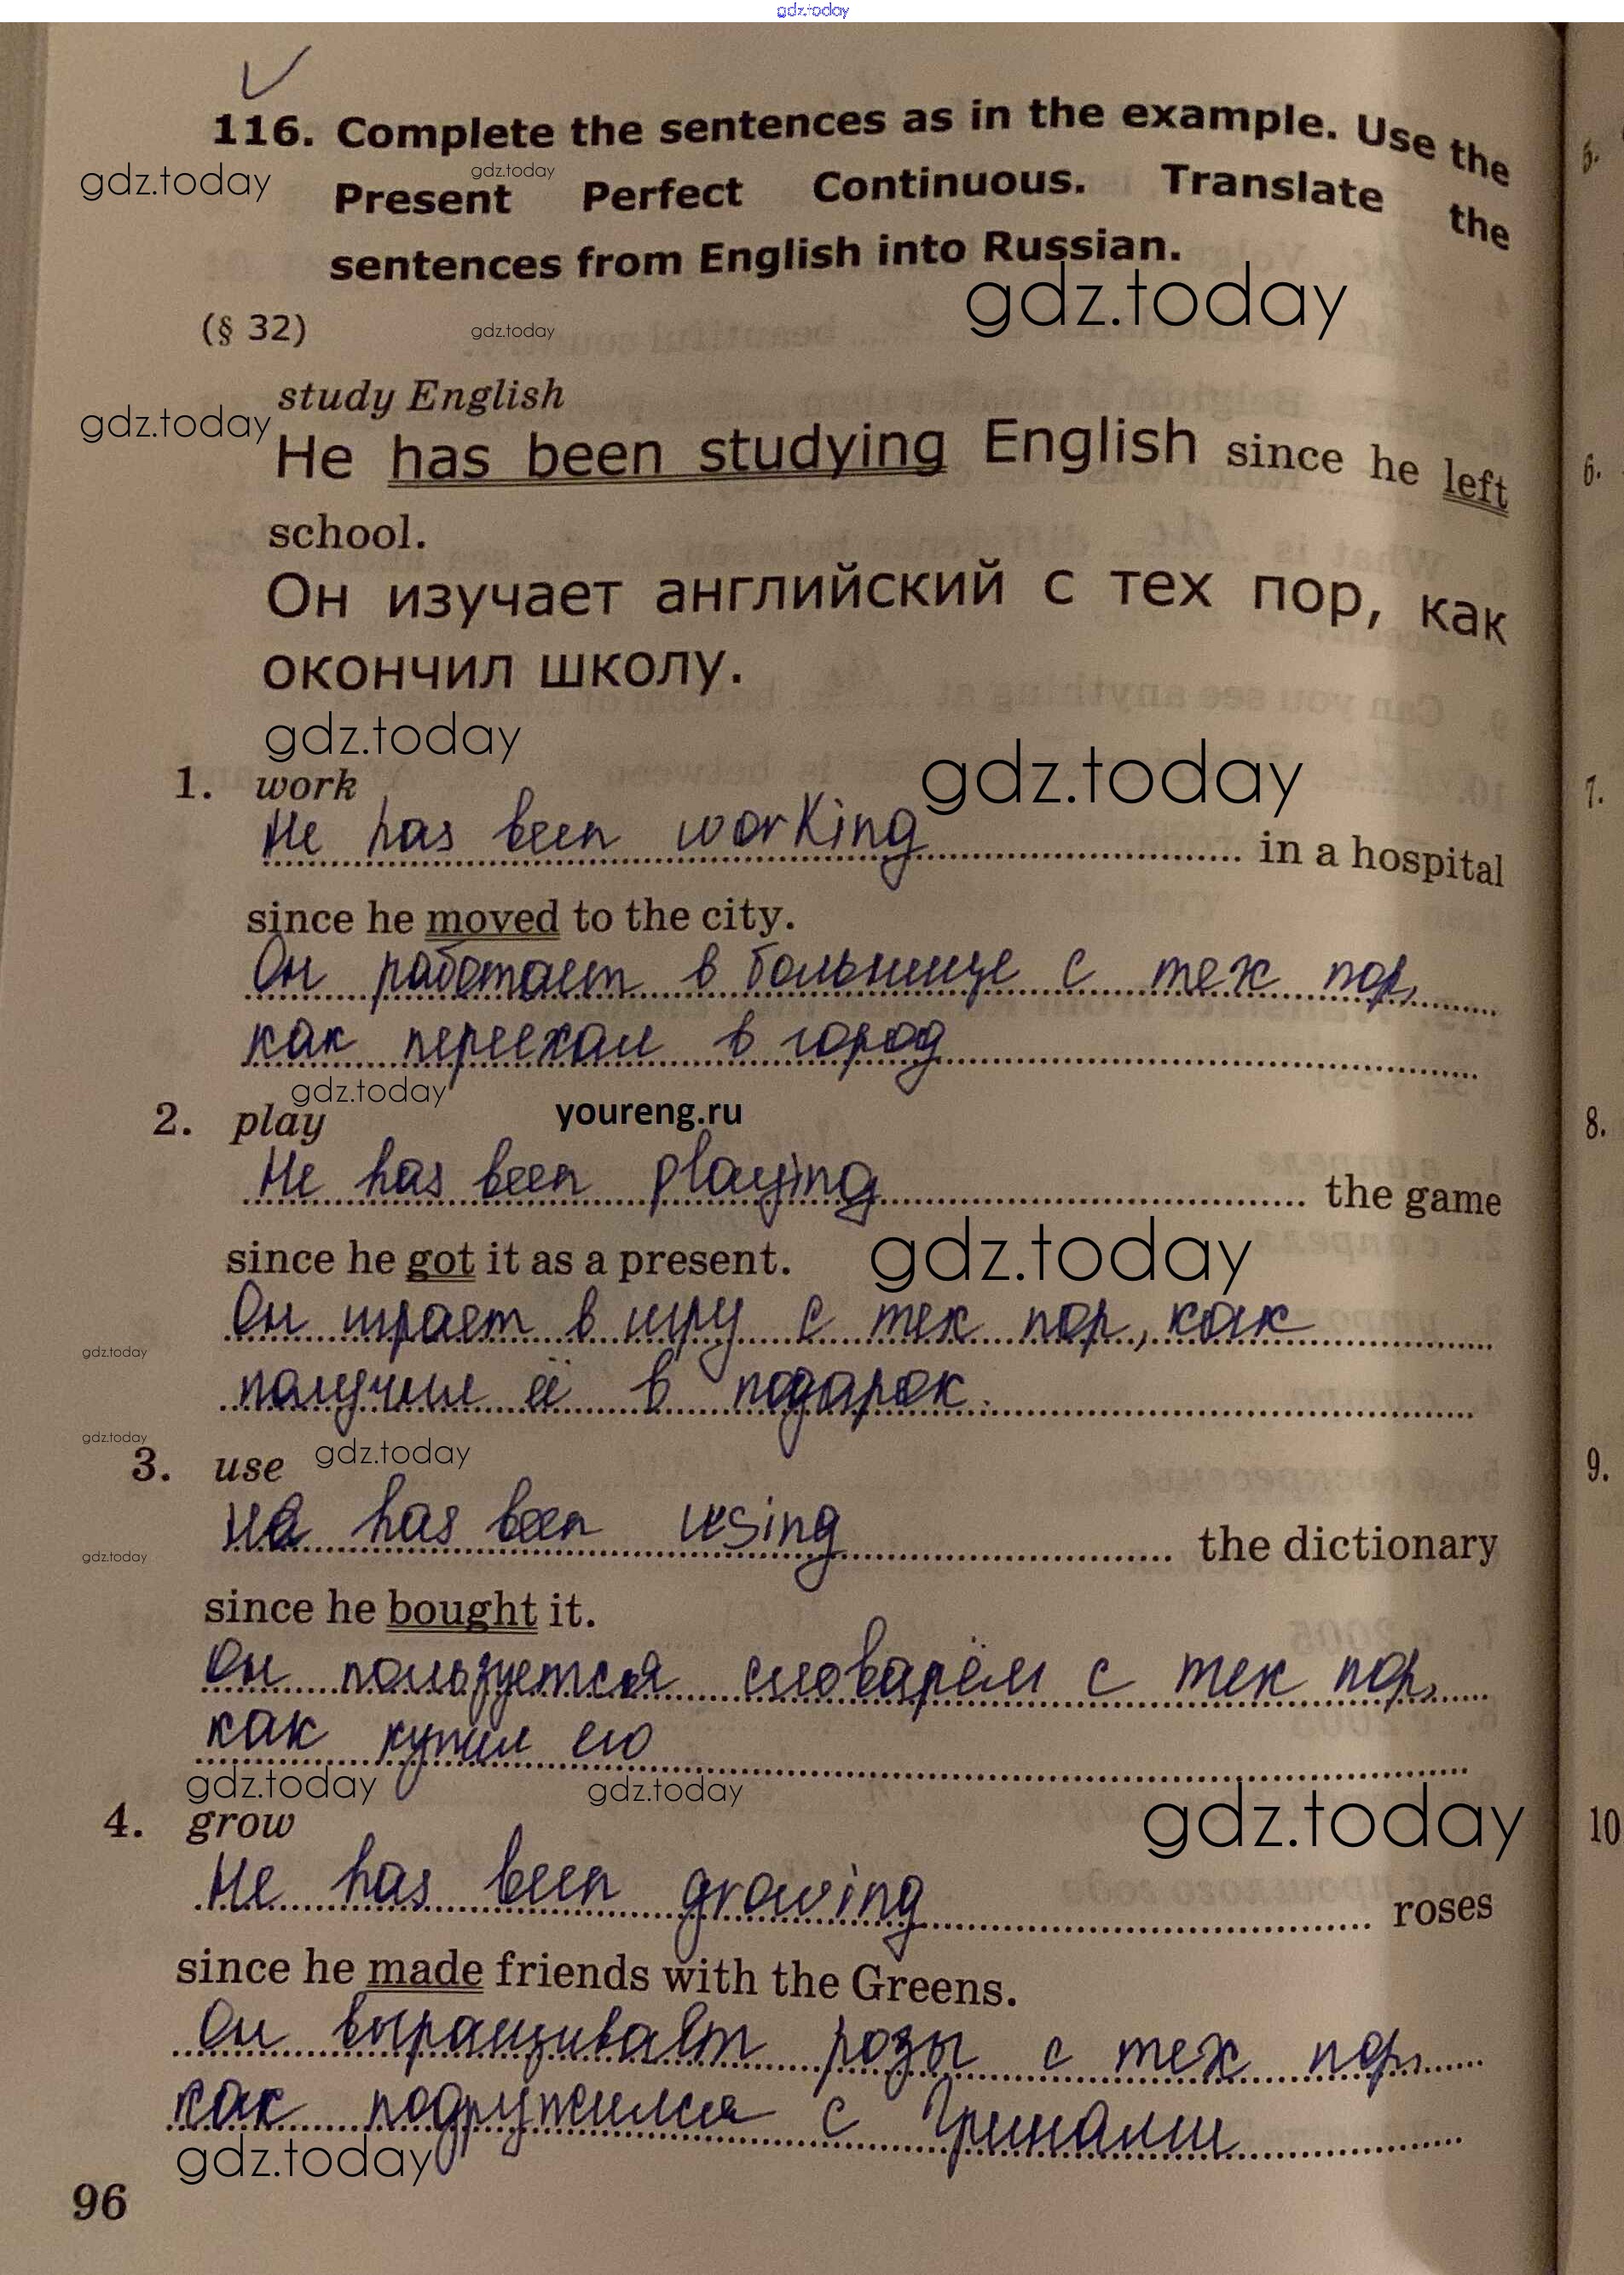 gdz.today
116. Complete the sentences as in the example. Use the
gdz.today gdz.today
Present Perfect Continuous. Translate the
sentences from English into Russian.
gdz.today
(§ 32) gdz.today
study English
gdz.today
He has been studying English since he left
school.
Он изучает английский с тех пор, как
окончил школу.
gdz.today gdz.today
1. work
He has been working in a hospital
since he moved to the city.
Он работает в больнице с тех пор,
как переехал в город
gdz.today
2. play youreng.ru
He has been playing the game
since he got it as a present. gdz.today
Он играет в игру с тех пор, как
gdz.today
получил её в подарок.
gdz.today
3. use gdz.today
He has been using the dictionary
gdz.today
since he bought it.
Он пользуется словарём с тех пор,
как купил его
gdz.today gdz.today gdz.today
4. grow
He has been growing roses
since he made friends with the Greens.
Он выращивает розы с тех пор,
как подружился с Гринами
gdz.today
96
5.
6.
7.
8.
9.
10